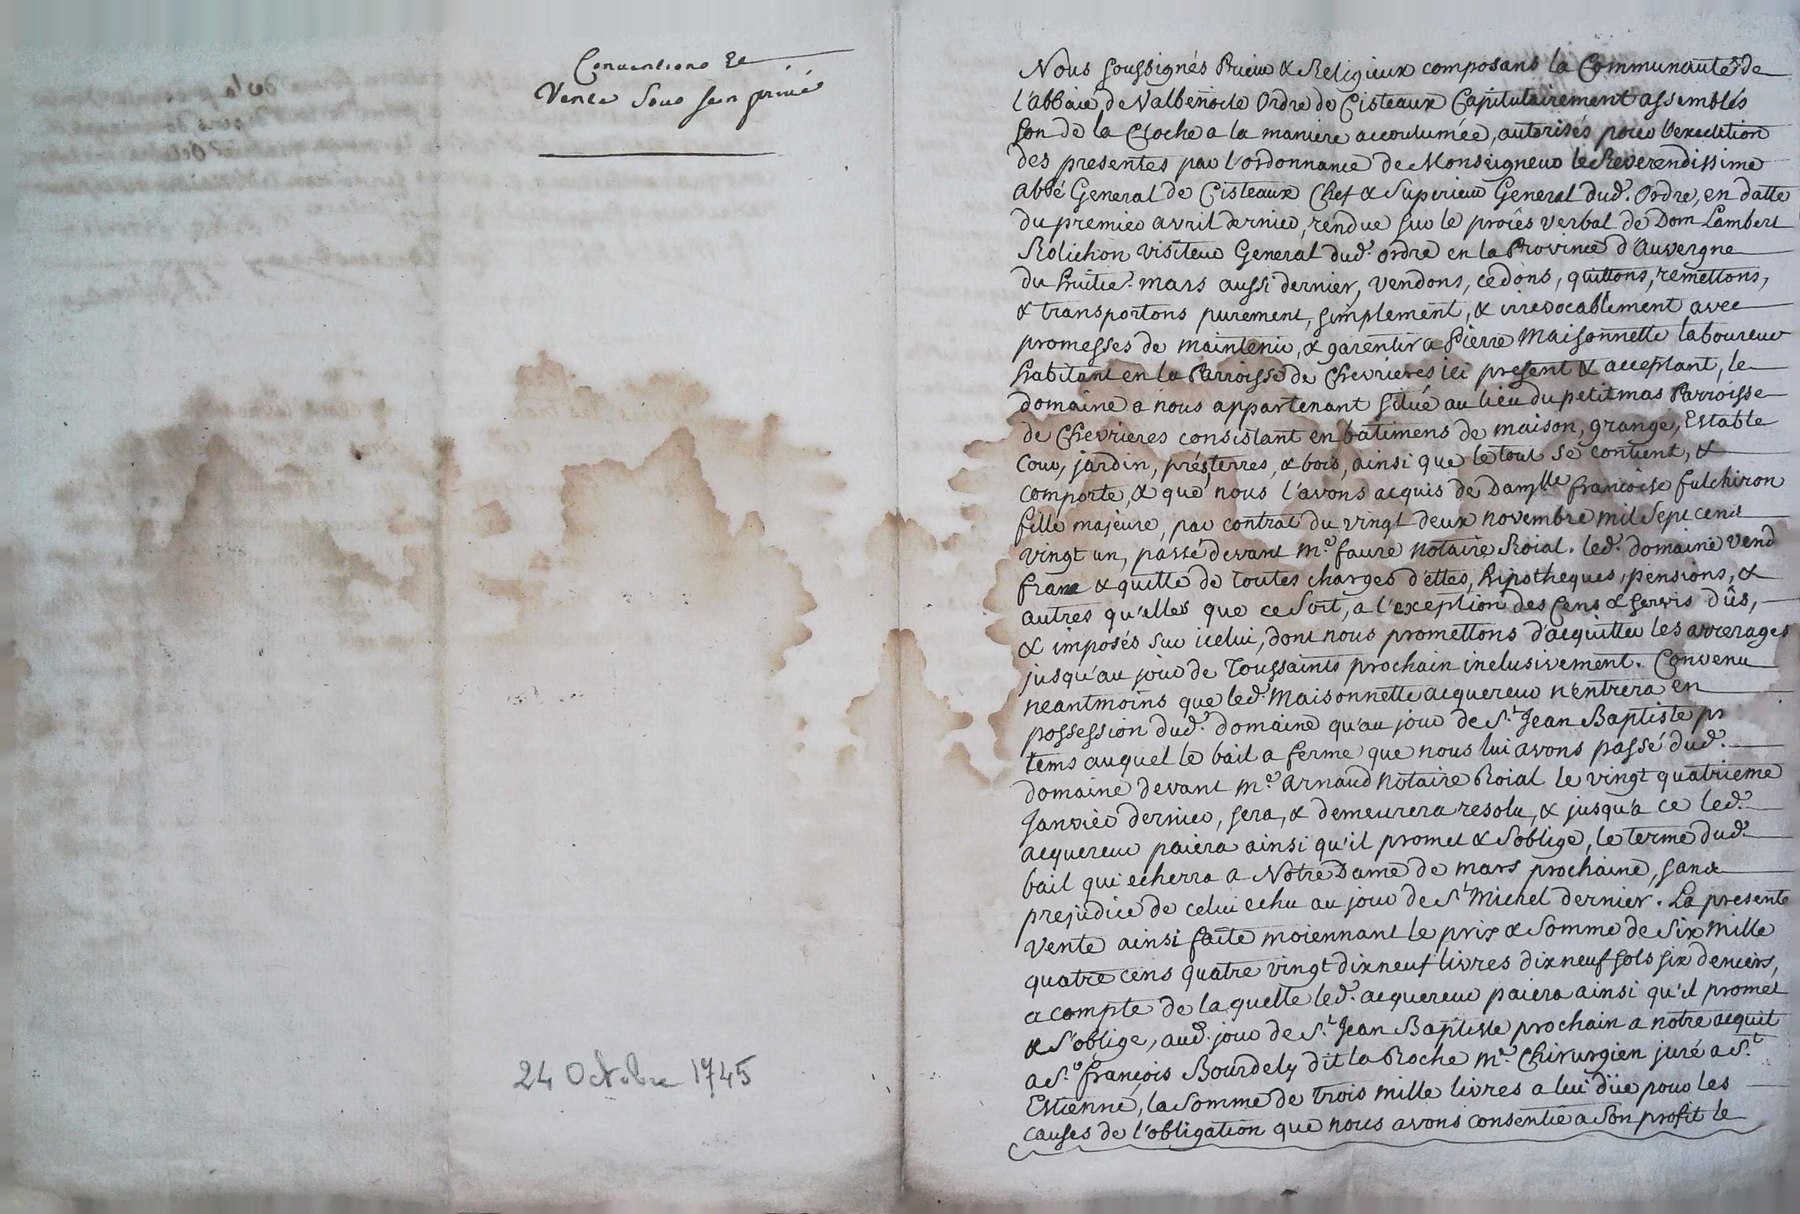 Conventions Et
Vente Sous sein privé
24 Octobre 1745
Nous soussignés Prieur & Religieux composans la Communauté de
l'abbaie de Valbenoite Ordre de Cisteaux Capitulairement assemblés
son de la Cloche a la maniere accoutumée, autorisés pour l'execution
des presentes par l'ordonnance de Monseigneur le Reverendissime
Abbé General de Cisteaux Chef & Superieur General dud. Ordre, en datte
du premier avril dernier, rendue sur le procès verbal de Dom Lambert
Rolichon visiteur General dud. ordre en la Province d'Auvergne
du huitie. mars aussi dernier, vendons, cedons, quittons, remettons,
& transportons purement, simplement, & irrevocablement avec
promesses de maintenir, & garentir a Pierre Maisonnette laboureur
habitant en la Parroisse de Chevrieres ici present & acceptant, le
domaine a nous appartenant situé au lieu du petit mas Parroisse
de Chevrieres consistant en batimens de maison, grange, Estable
Cour, jardin, prés, terres, & bois, ainsi que le tout se contient, &
comporte, & que nous l'avons acquis de Damlle francoise fulchiron
fille majeure, par contrat du vingt deux novembre mil sept cent
vingt un, passé devant Me. faure Notaire Roial. led. domaine vend
franc & quitte de toutes charges d'ettes, hipotheques, pensions, &
autres qu'elles que ce soit, a l'exception des Cens & servis dûs,
& imposés sur icelui, dont nous promettons d'acquitter les arrerages
jusqu'au jour de Toussaints prochain inclusivement. Convenu
neantmoins que led. Maisonnette acquereur n'entrera en
possession dud. domaine qu'au jour de St. Jean Baptiste pr
tems auquel le bail a ferme que nous lui avons passé dud.
domaine devant Me. Arnaud Notaire Roial le vingt quatrieme
Janvier dernier, sera, & demeurera resolu, & jusqu'a ce led.
acquereur paiera ainsi qu'il promet & s'oblige, le terme dud.
bail qui echerra a Notre Dame de mars prochaine, sans
prejudice de celui echu au jour de St Michel dernier. La presente
Vente ainsi faite moiennant le prix & Somme de Six Mille
quatre cens quatre vingt dixneuf livres dixneuf sols six deniers,
a compte de la quelle led. acquereur paiera ainsi qu'il promet
& s'oblige, aud. jour de St. Jean Baptiste prochain a notre acquit
a Sr. françois Bourdely dit la Roche Me. Chirurgien juré a St.
Estienne, la somme de trois mille livres a lui düe pour les
causes de l'obligation que nous avons consentie a Son profit le